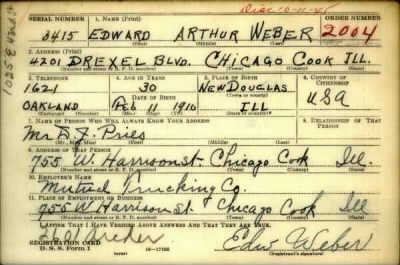 Disc-10-11-45
SERIAL NUMBER 1. NAME (Print) ORDER NUMBER
3415 EDWARD ARTHUR WEBER 2004
(First) (Middle) (Last)
2. ADDRESS (Print)
4201 DREXEL BLVD. CHICAGO COOK ILL.
(Number and street or R. F. D. number) (Town) (County) (State)
3. TELEPHONE 4. AGE IN YEARS 5. PLACE OF BIRTH 6. COUNTRY OF CITIZENSHIP
1621 30 NEW DOUGLAS
DATE OF BIRTH (Town or county) USA
OAKLAND FEB 11 1910 ILL
(Exchange) (No.) (Mo.) (Day) (Yr.) (State or country)
7. NAME OF PERSON WHO WILL ALWAYS KNOW YOUR ADDRESS 8. RELATIONSHIP OF THAT PERSON
Mr D. J. Pries
(Mr., Mrs., Miss) (First) (Middle) (Last)
9. ADDRESS OF THAT PERSON
755 W. Harrison St. Chicago Cook Ill.
(Number and street or R. F. D. number) (Town) (County) (State)
10. EMPLOYER'S NAME
Mutual Trucking Co.
11. PLACE OF EMPLOYMENT OR BUSINESS
755 W Harrison St Chicago Cook Ill
(Number and street or R. F. D. number) (Town) (County) (State)
I AFFIRM THAT I HAVE VERIFIED ABOVE ANSWERS AND THAT THEY ARE TRUE.
REGISTRATION CARD
D. S. S. Form 1 (over) 16-17105 Edw Weber
(Registrant's signature)